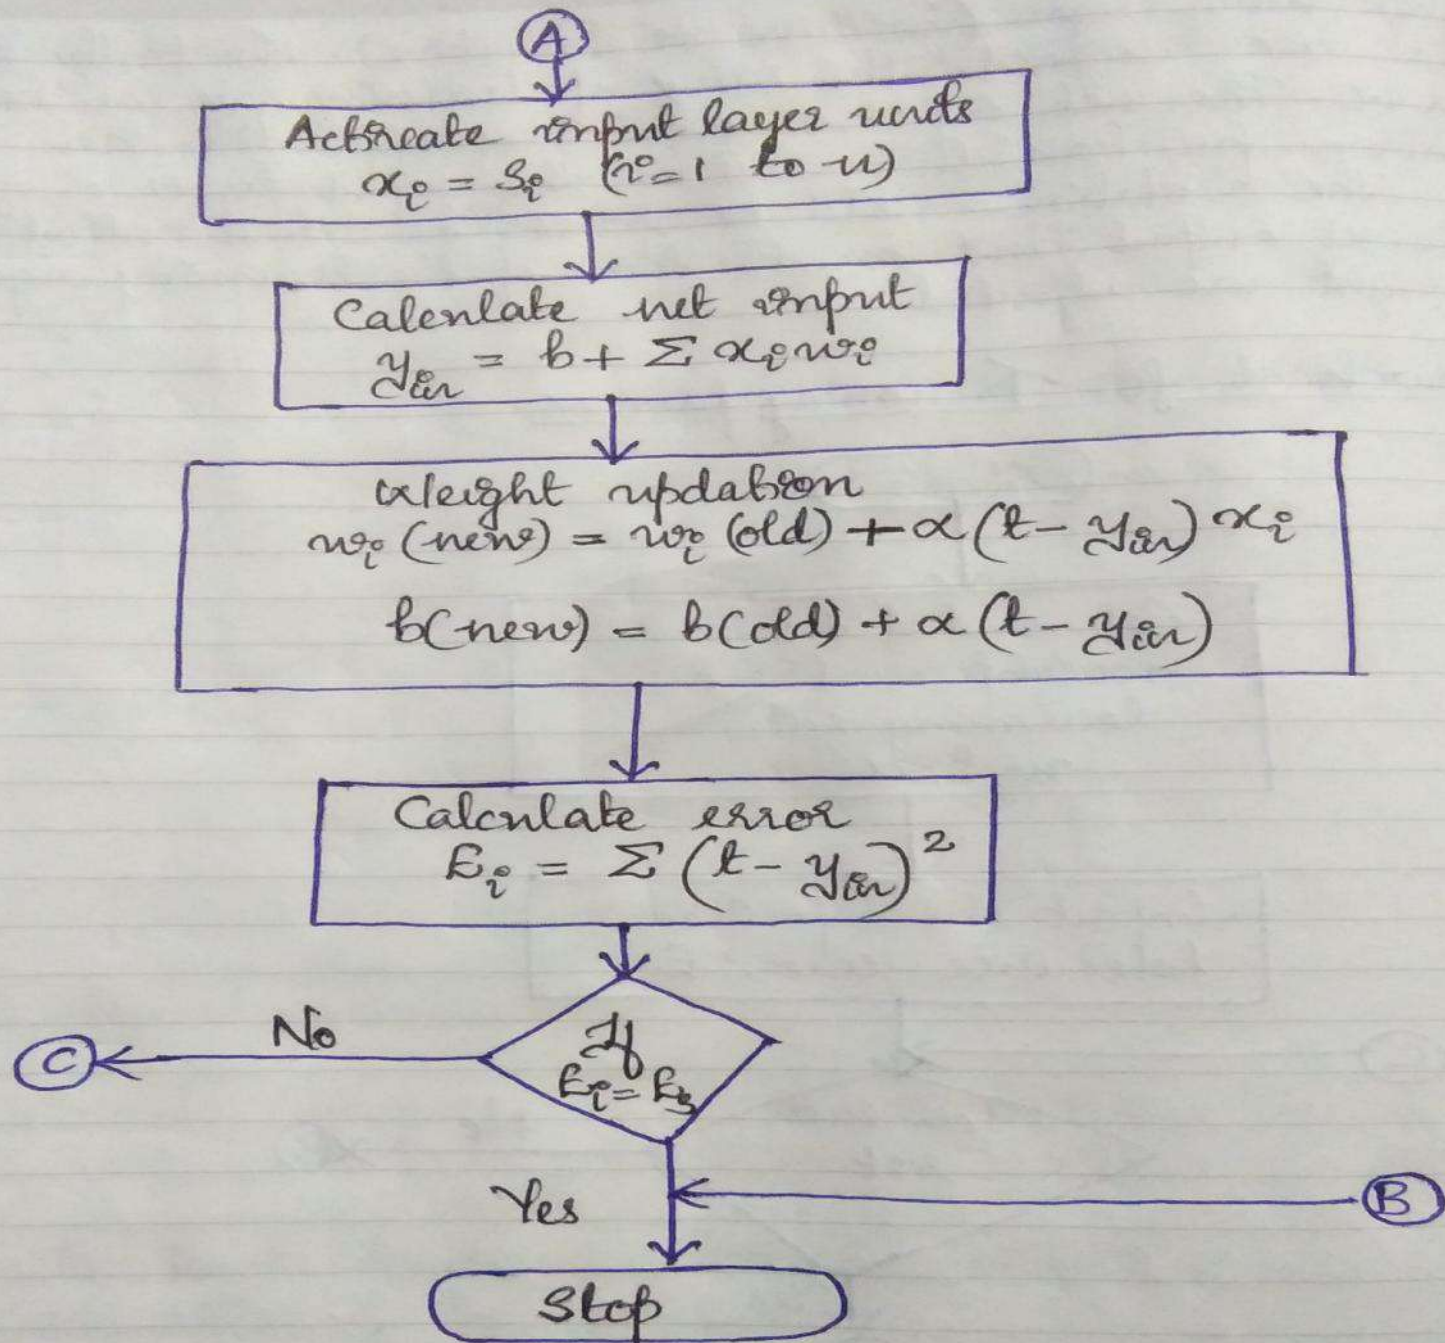 A
Activate input layer units
xᵢ = Sᵢ (i=1 to n)
Calculate net input
yᵢₙ = b + Σ xᵢ wᵢ
Weight updation
wᵢ (new) = wᵢ (old) + α (t - yᵢₙ) xᵢ
b(new) = b(old) + α (t - yᵢₙ)
Calculate error
Eᵢ = Σ (t - yᵢₙ)²
No
C
If
Eᵢ = Eₛ
Yes
B
Stop